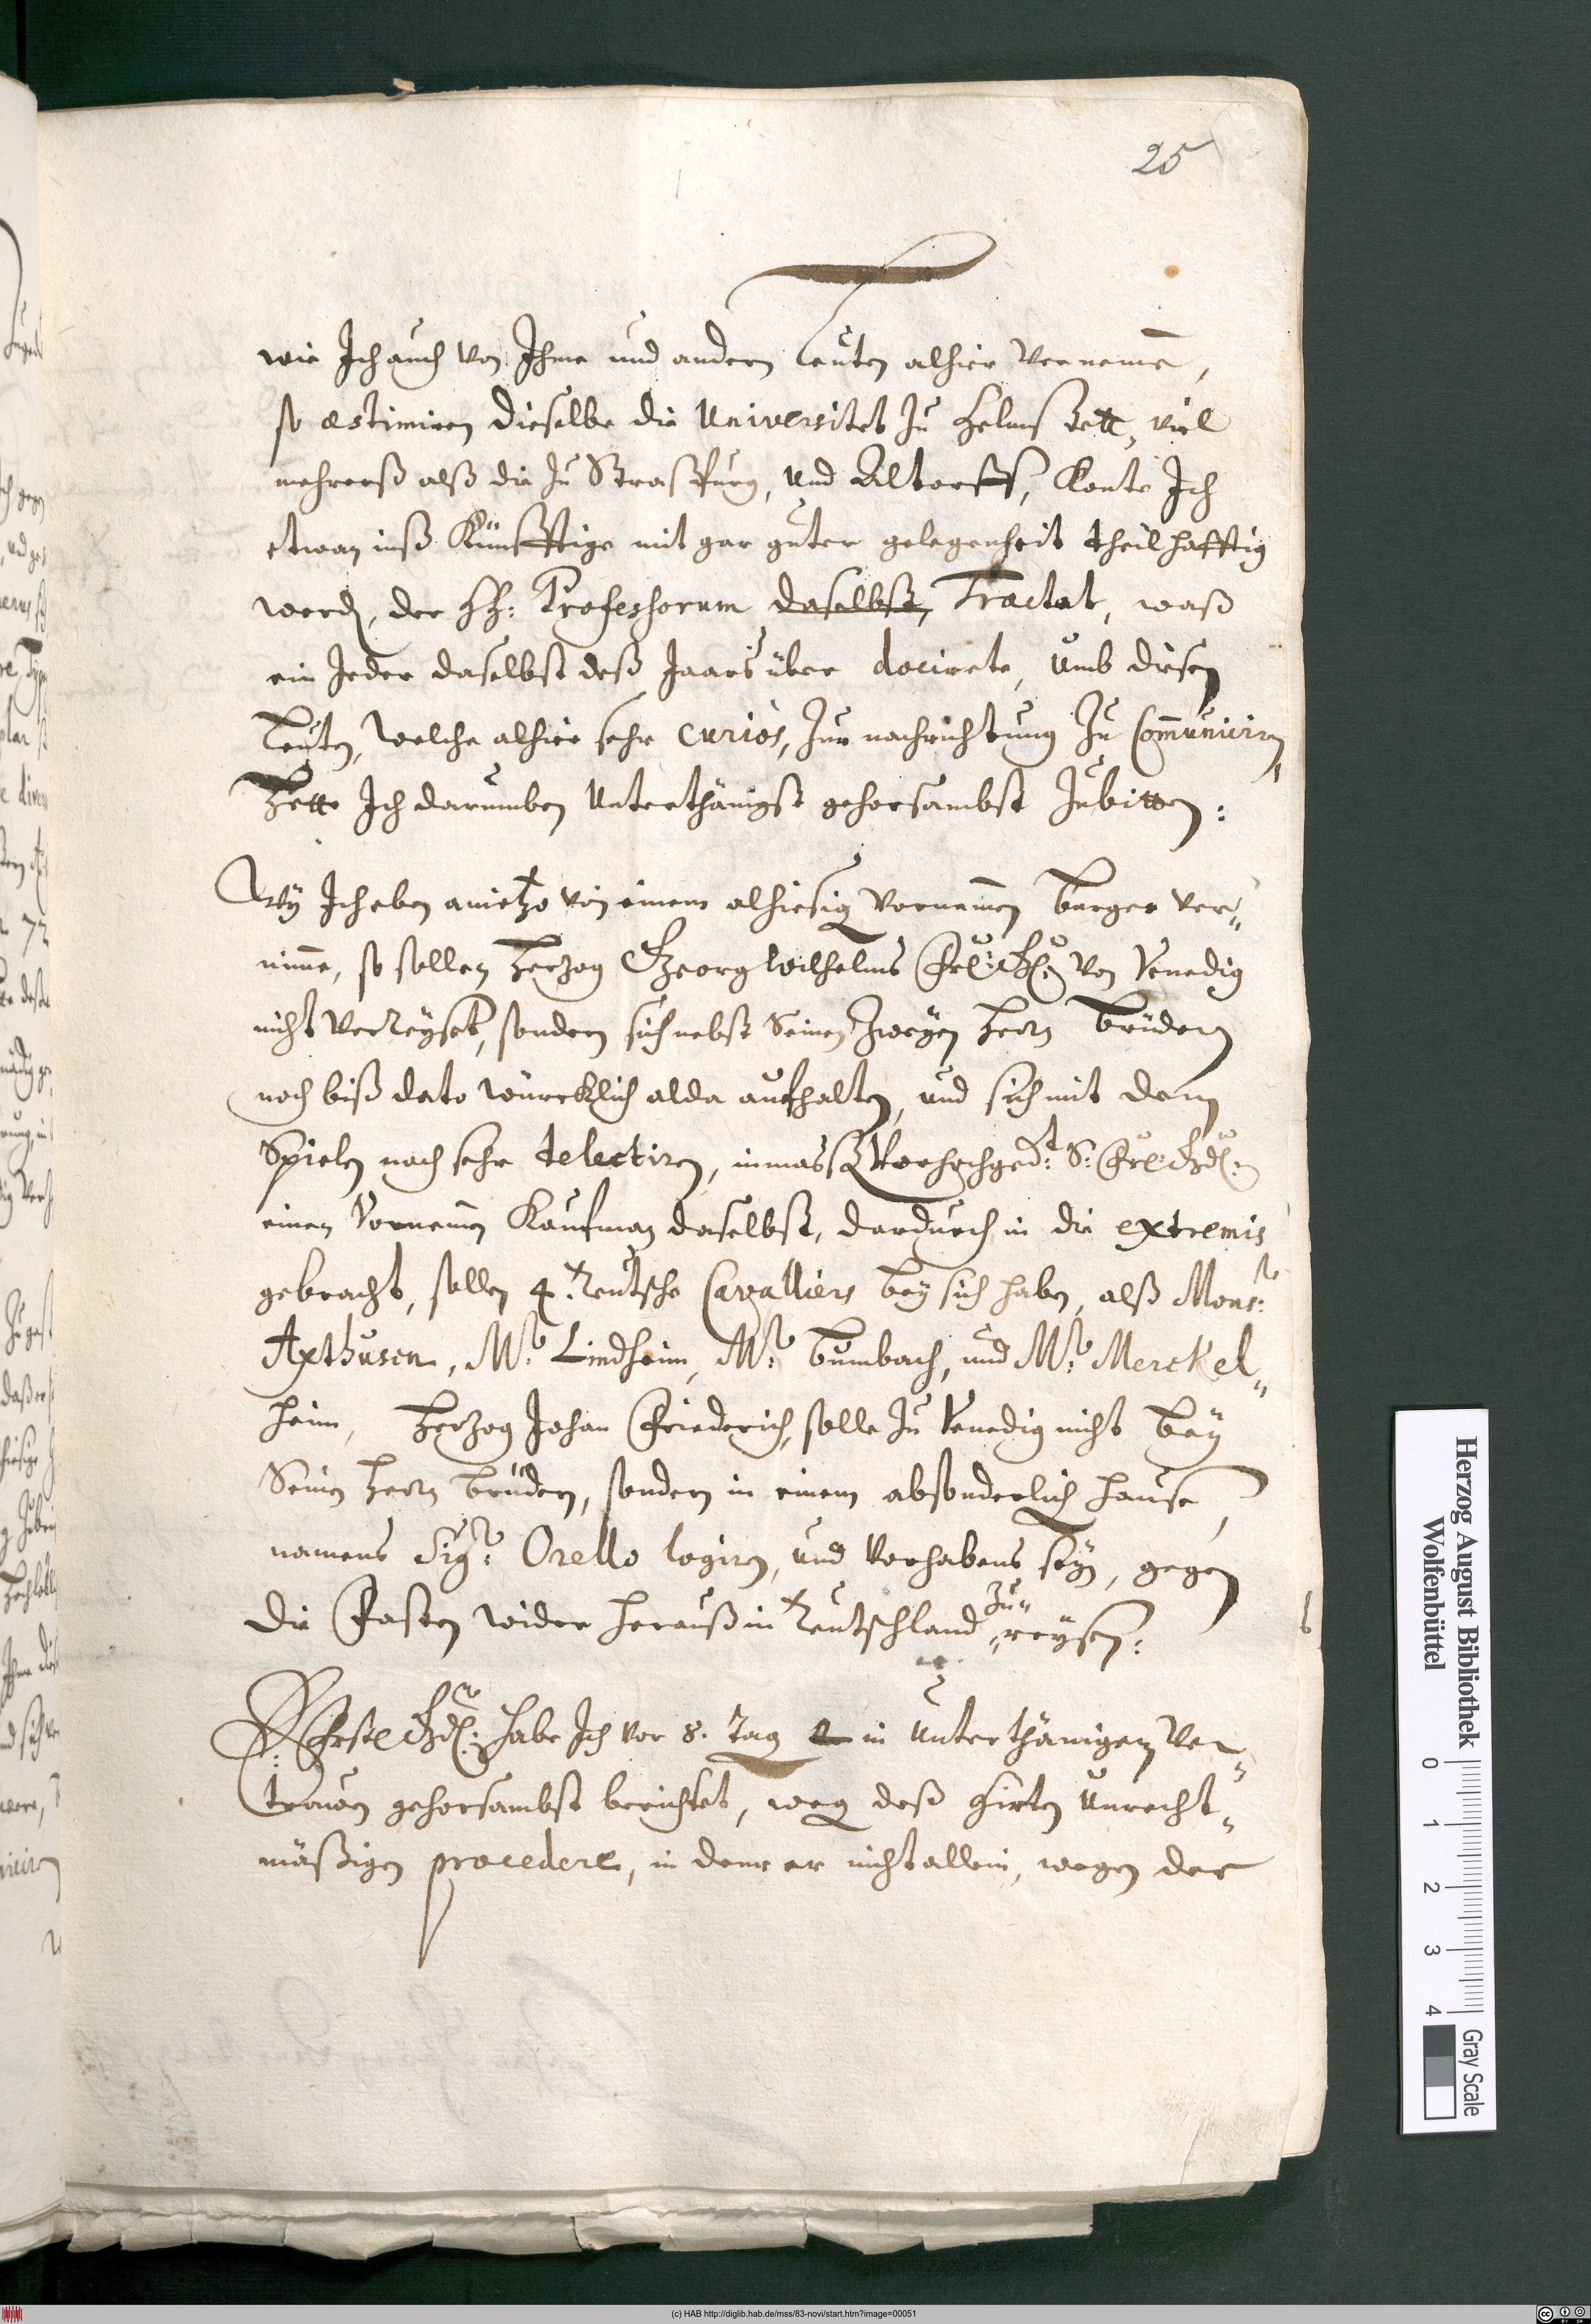 25
wie Ich auch von Ihme und andern leuten alhier vernemē,
so æstimiren dieselbe die Universitet zu Helmstett, viel
mehrerß alß die zu Straßburg, und Altorff, Konte Ich
etwan inß Künfftige mit gar guter gelegenheit theilhafftig
werdē, der HH: Professorum daselbst, Tractat, waß
ein Jeder daselbst deß Jaars über docirete, umb diesen
Leuten, welche alhier sehr curiós, zur nachrichtung zu Com̄uniciren,
Hette Ich darumben unterthänigst gehorsambst zubitten:
Wÿ Ich eben anietzo von einem alhiesig vornem̄en burger ver„
nim̄e, so sollen Hertzog Georg wilhelms Frl: Dhl: von Venedig
nicht verreÿset, sondern sich nebst Seinen zweÿen Herrn brüdern
noch biß dato würcklich alda aufhalten, und sich mit dem
Spielen noch sehr delectiren, inmassē Vorhochgedt: S: Frl: Dhl:
einen Vornem̄en Kaufman daselbst, dardurch in die extremis
gebracht, sollen 4. Teutsche Cavalliers beÿ sich haben, alß Monsr:
Axthusen, Mr: Lindheim, Mr: bumbach, und Mr: Merckel„
heim, Hertzog Johan Friederich, solle zu Venedig nicht beÿ
Seinē Herrn brüdern, sondern in einem absonderlichē Hause,
namens Sigr: Orello logiren, und Vorhabens seÿn, gegen
die Fasten wider herauß in Teutschland zu„
„reÿsen:
E: Frstl Dhl: habe Ich vor 8. Tagē in unterthänigem Ver„
trawen gehorsambst berichtet, wegē deß Hirten unrecht„
mäßigen procedere, in deme er nicht allein, wegen der
Herzog August Bibliothek
Wolfenbüttel
0 1 2 3 4
Gray Scale
(c) HAB http://diglib.hab.de/mss/83-novi/start.htm?image=00051